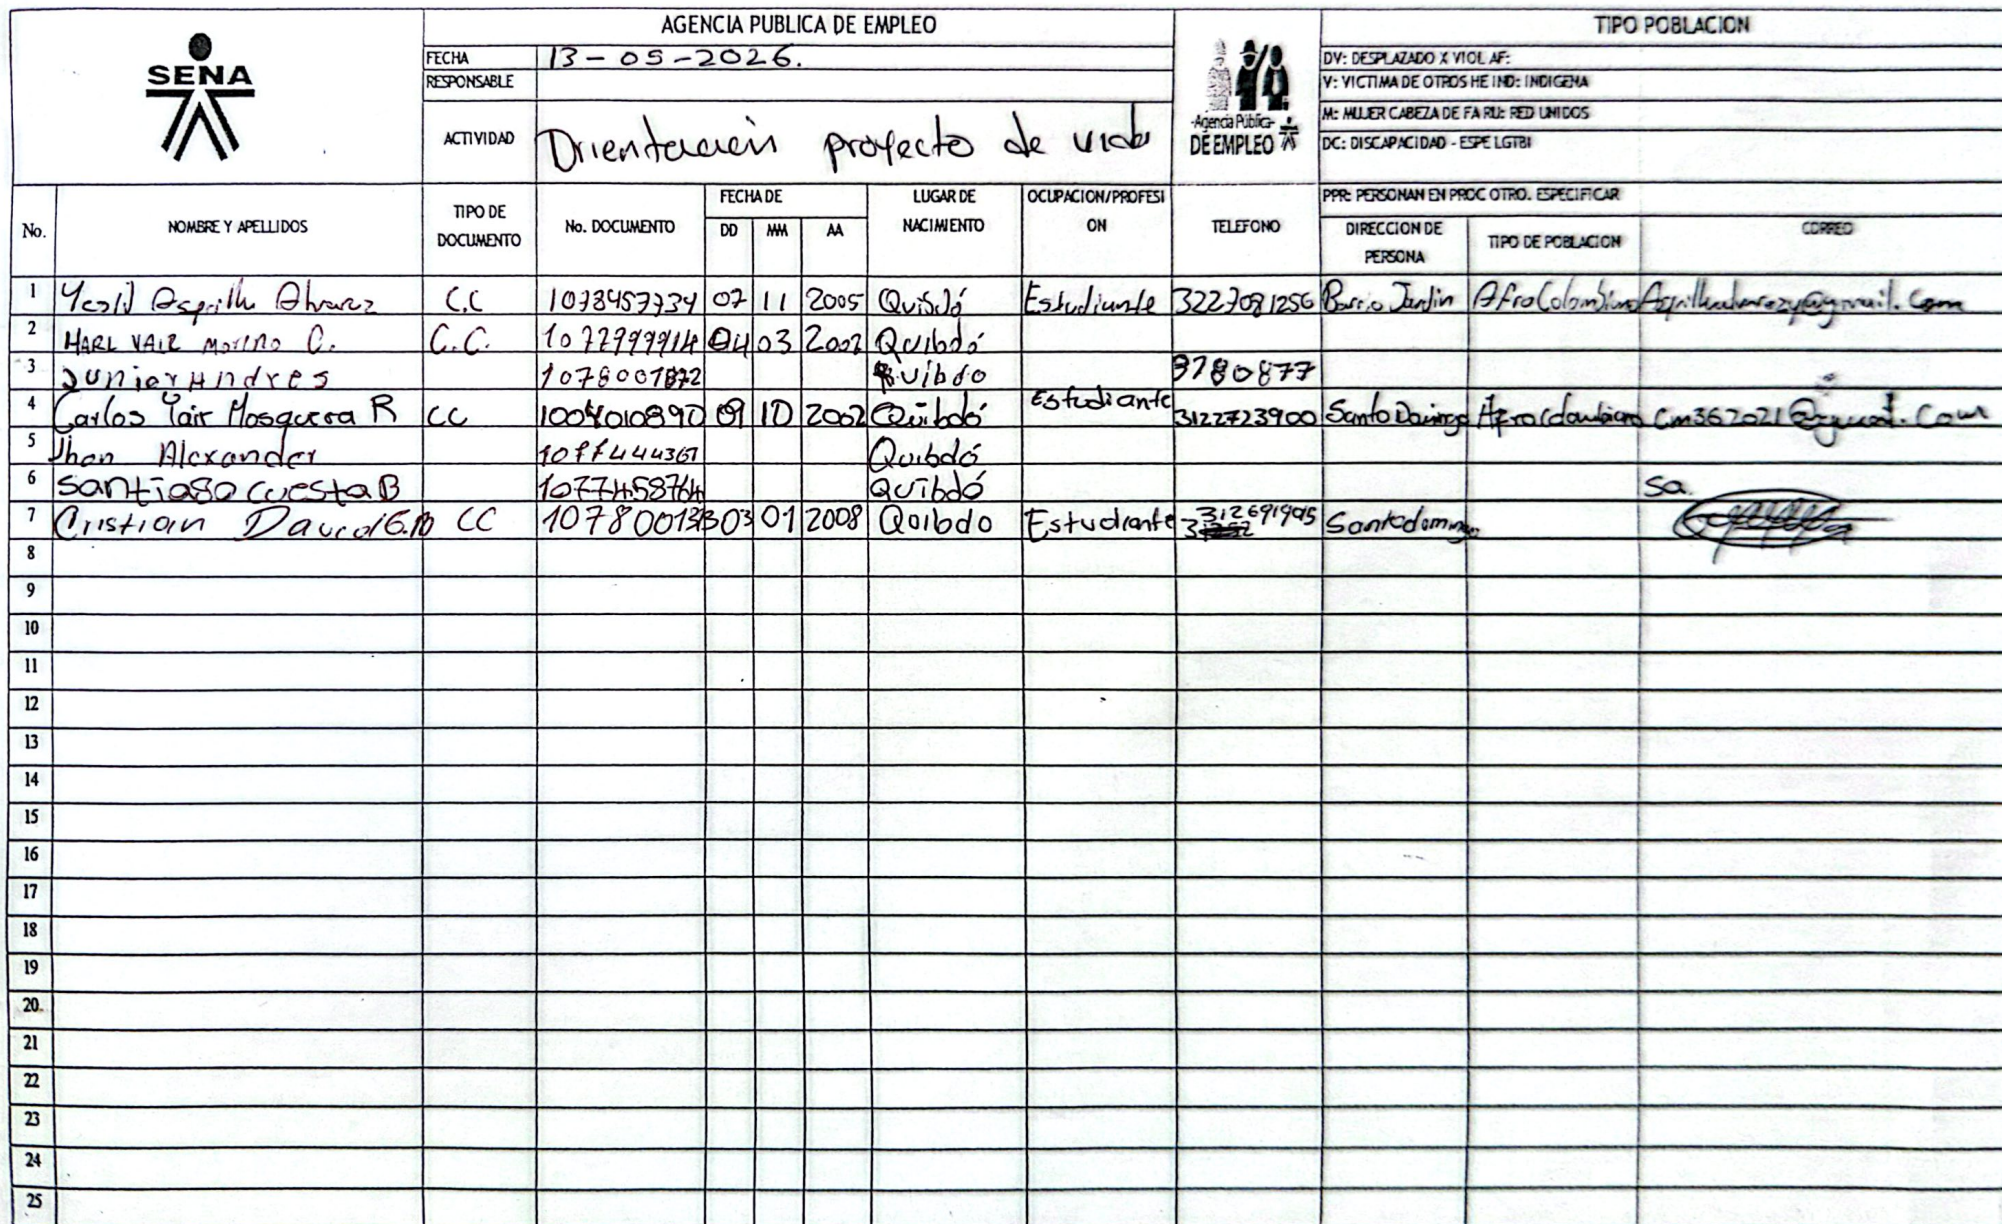 SENA
AGENCIA PUBLICA DE EMPLEO
FECHA 13-05-2026.
RESPONSABLE
ACTIVIDAD Orientación proyecto de vida
-Agencia Pública-
DE EMPLEO
TIPO POBLACION
DV: DESPLAZADO X VIOL AF:
V: VICTIMA DE OTROS HE IND: INDIGENA
M: MUJER CABEZA DE FA RU: RED UNIDOS
DC: DISCAPACIDAD - ESPE LGTBI
PPR: PERSONAN EN PROC OTRO. ESPECIFICAR
No. NOMBRE Y APELLIDOS TIPO DE DOCUMENTO No. DOCUMENTO FECHA DE DD MM AA LUGAR DE NACIMIENTO OCUPACION/PROFESI ON TELEFONO DIRECCION DE PERSONA TIPO DE POBLACION CORREO
1 Yesid Asprilla Alvarez C.C 1078457734 07 11 2005 Quibdó Estudiante 3227081256 Barrio Jardin AfroColombiano
2 HARL YAIR MORENO C. C.C. 04 03 2002 Quibdó
3 Junior Andres 1078001872 Quibdo 3780877
4 Carlos Yair Mosquera R CC 1004010890 09 10 2002 Quibdó Estudiante 3122723900 Santo Domingo Afrocolombiano cm362021@gmail.com
5 Jhon Alexander Quibdó
6 Santiago cuesta B 1077458764 Quibdó
7 Cristian David G.M CC 03 01 2008 Quibdo Estudiante Santodomingo
8
9
10
11
12
13
14
15
16
17
18
19
20
21
22
23
24
25